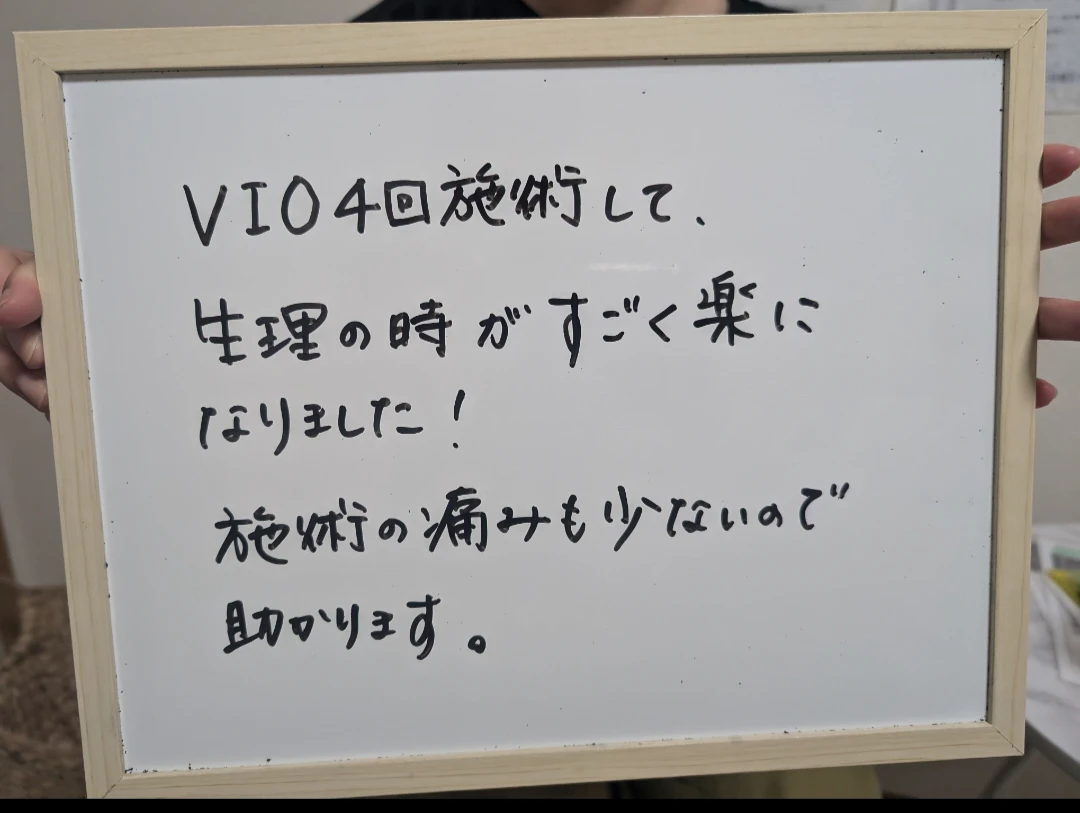 VIO4回施術して、
生理の時がすごく楽に
なりました!
施術の痛みも少ないので
助かります。